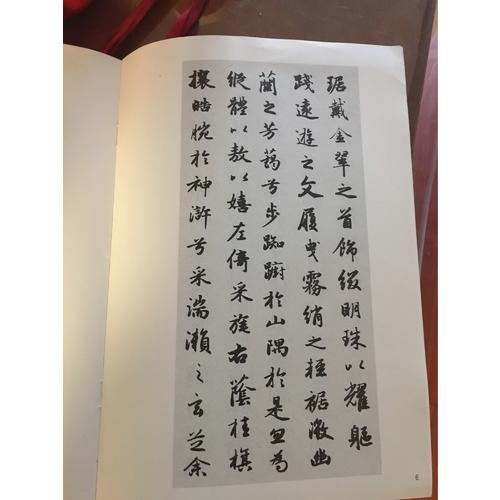 琚戴金翠之首飾綴明珠以耀軀
踐遠遊之文履曳霧綃之輕裾微幽
蘭之芳藹兮步踟躕於山隅於是忽焉
縱體以敖以嬉左倚采旄右蔭桂旗
攘皓腕於神滸兮采湍瀨之玄芝余
6